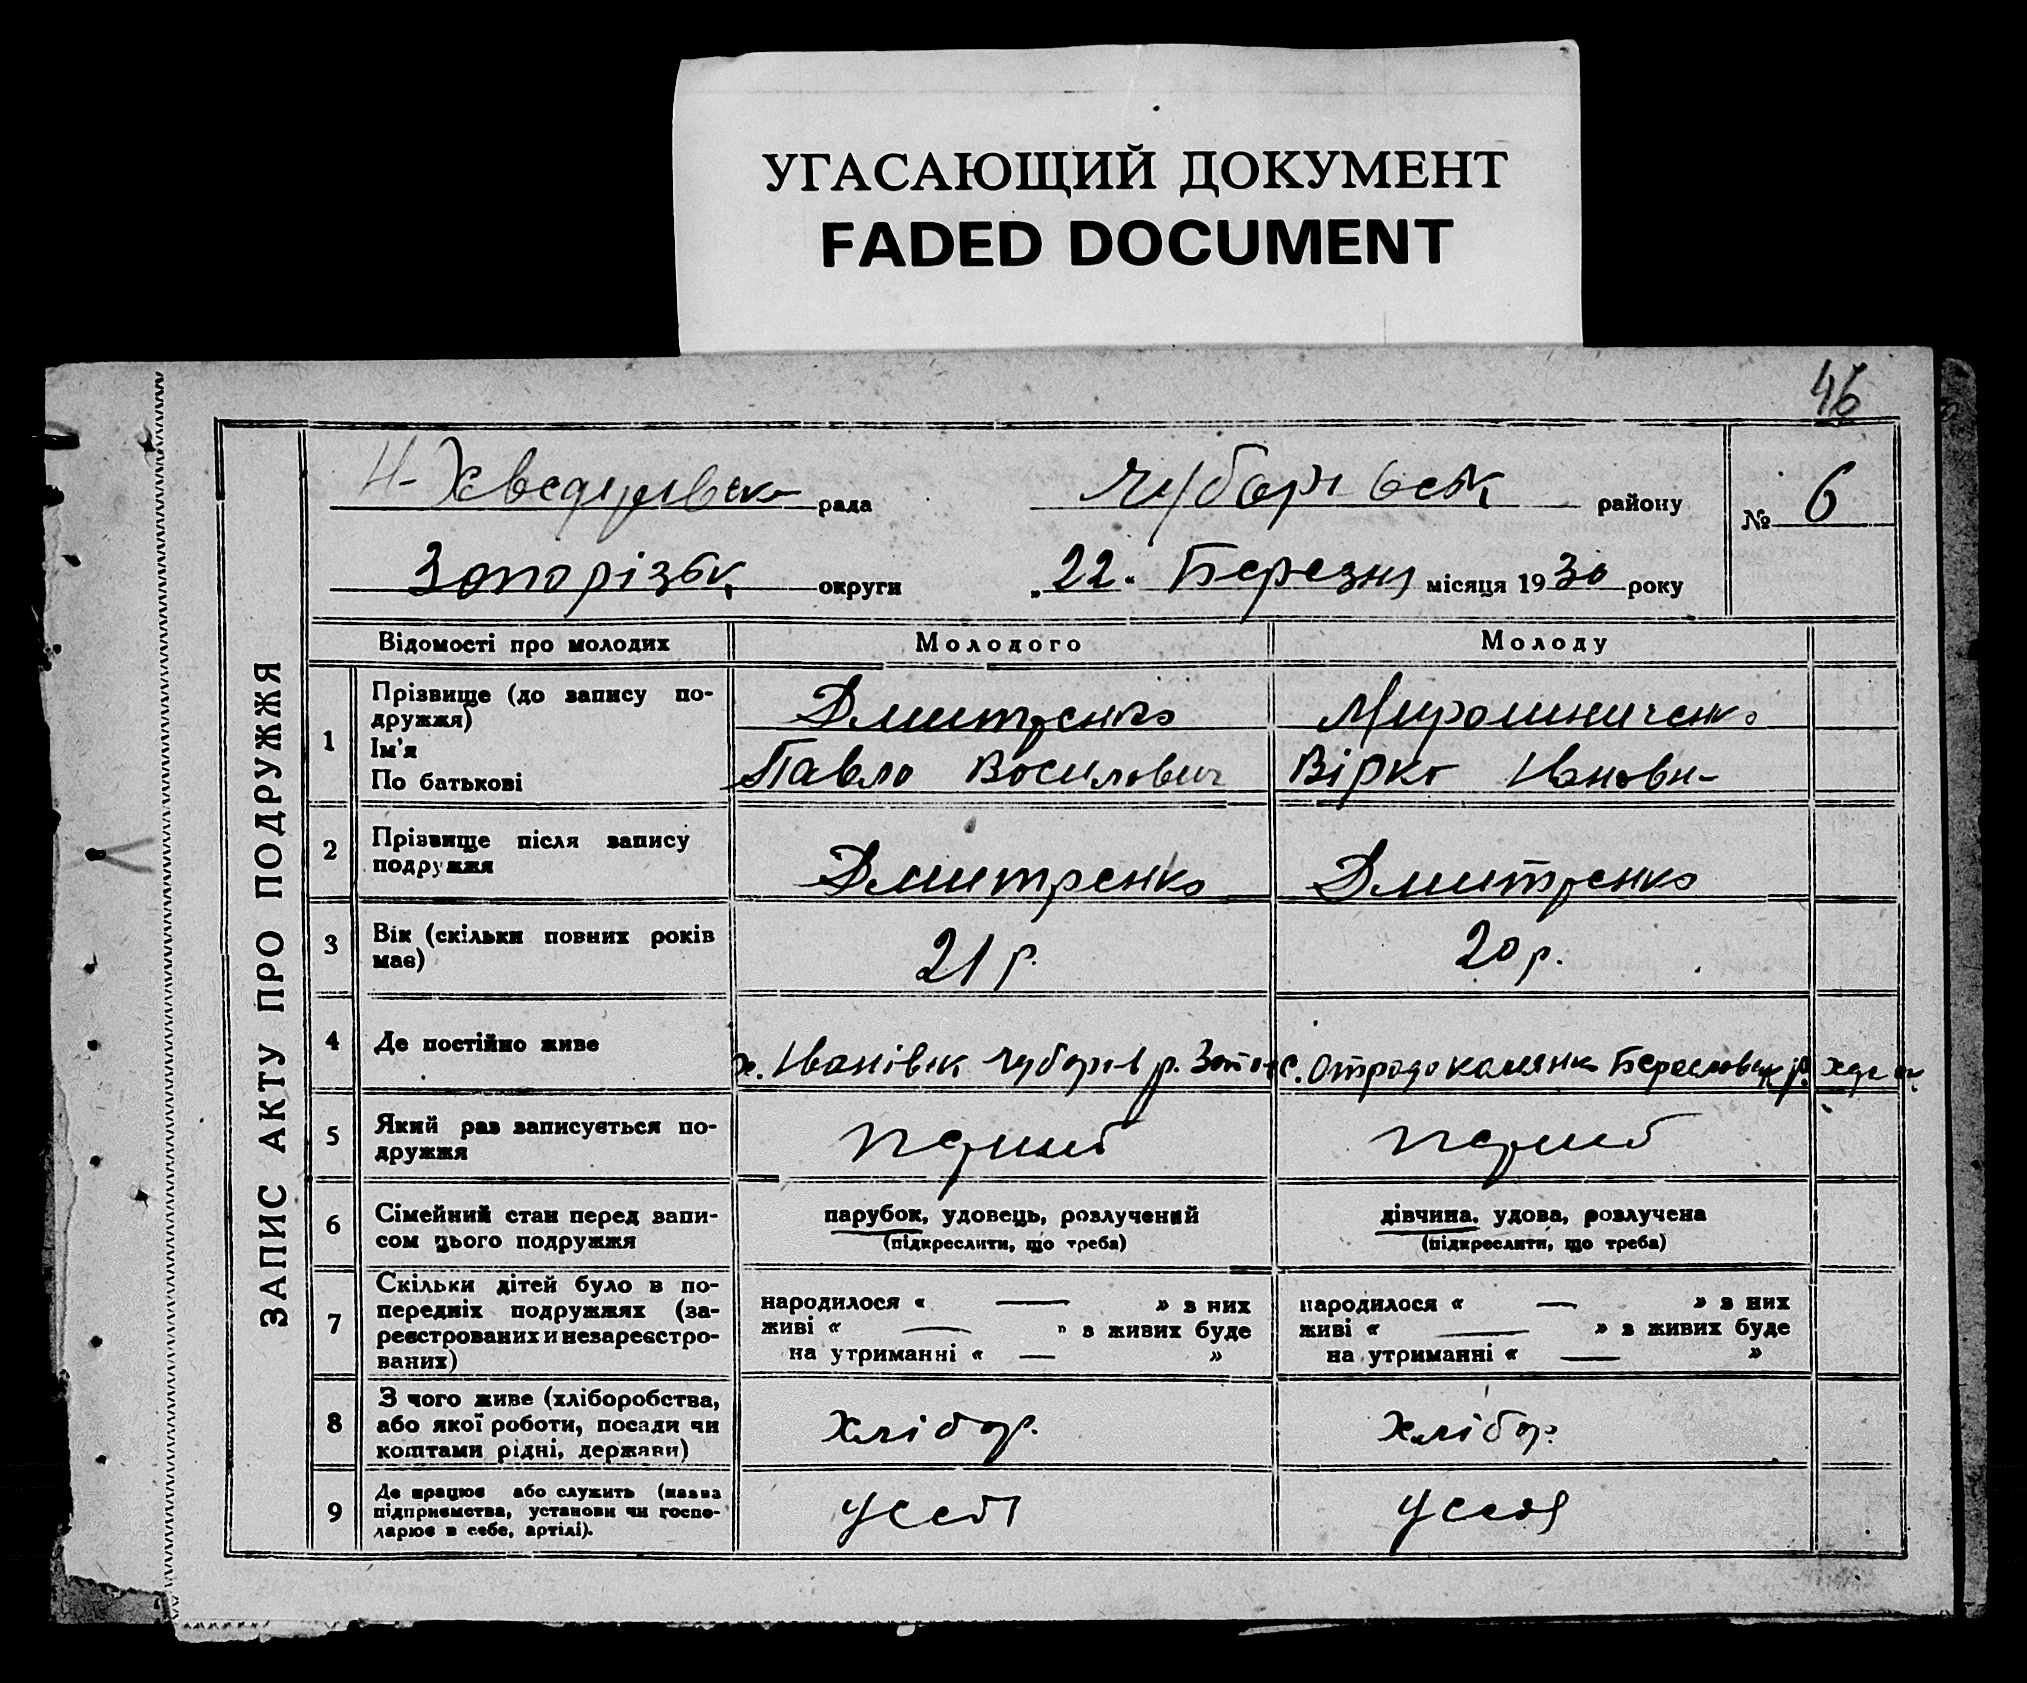 УГАСАЮЩИЙ ДОКУМЕНТ
FADED DOCUMENT
46
ЗАПИС АКТУ ПРО ПОДРУЖЖЯ
Н-Хведорівськ рада Чубарівськ району № 6
Запорізьк округи „22" Березня місяця 1930 року
Відомості про молодих Молодого Молоду
1 Прізвище (до запису по-
дружжя) Дмитренко Мирошниченко
Ім'я
По батькові Павло Василович Вірка Іванови-
2 Прізвище після запису
подружжя Дмитренко Дмитренко
3 Вік (скільки повних років
має) 21 р. 20 р.
4 Де постійно живе х. Іванівк Чубарів р. Запо с. Отрадокамянка Береславськ р.
5 Який раз записується по-
дружжя перший перший
6 Сімейний стан перед запи-
сом цього подружжя
парубок, удовець, розлучений дівчина, удова, розлучена
(підкреслити, що треба) (підкреслити, що треба)
7 Скільки дітей було в по-
передніх подружжях (за-
реєстрованих и незареєстро-
ваних)
народилося « — » з них народилося « — » з них
живі « — » з живих буде живі « — » з живих буде
на утриманні « — » на утриманні « — »
8 З чого живе (хліборобства,
або якої роботи, посади чи
коштами рідні, держави) хлібор. хлібор.
9 Де працює або служить (назва
підприємства, установи чи госпо-
дарює в себе, артілі). у себя у себя